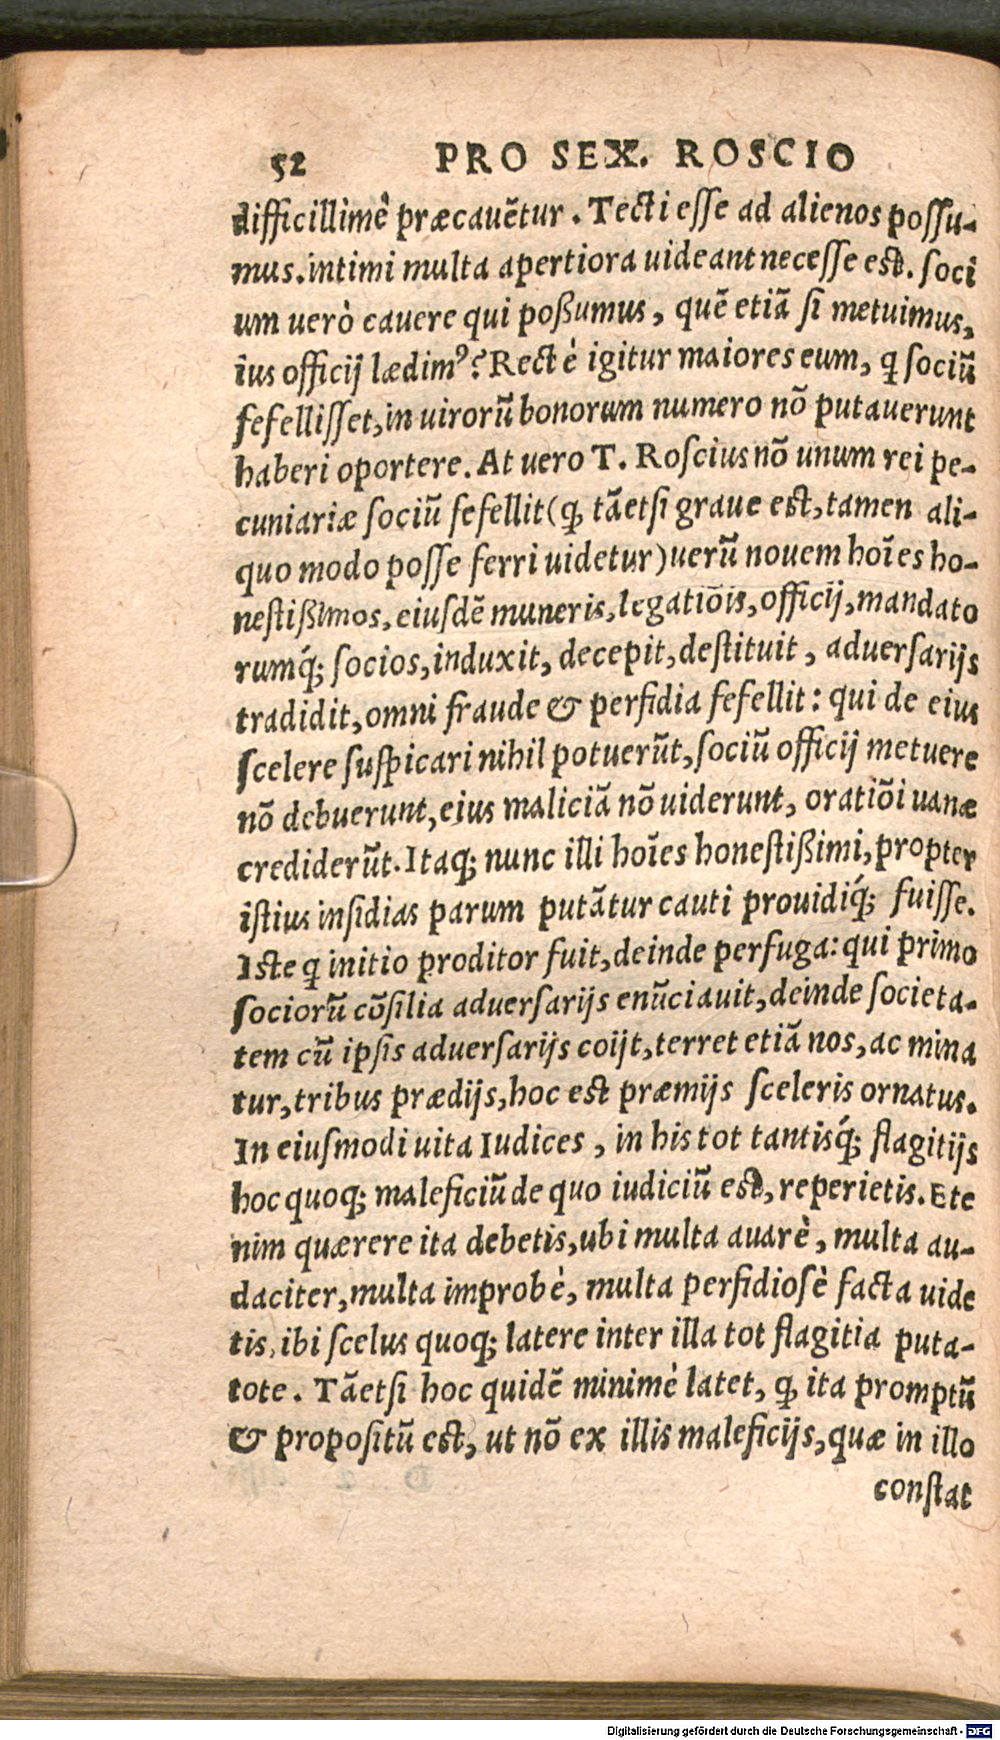 52 PRO SEX. ROSCIO
difficillimê præcauẽtur. Tecti eſſe ad alienos poſſu-
mus. intimi multa apertiora uideant neceſſe eſt. ſoci
um uerò cauere qui poßumus, quẽ etiã ſi metuimus,
ius officij lædimꝰ? Rectè igitur maiores eum, ꝗ ſociũ
fefelliſſet, in uirorũ bonorum numero nõ putauerunt
haberi oportere. At uero T. Roſcius nõ unum rei pe-
cuniariæ ſociũ fefellit (ꝙ tãetſi graue eſt, tamen ali-
quo modo poſſe ferri uidetur) uerũ nouem hoĩes ho-
neſtißimos, eiuſdẽ muneris, legatiõis, officij, mandato
rumq́; ſocios, induxit, decepit, deſtituit, aduerſarijs
tradidit, omni fraude & perfidia fefellit: qui de eius
ſcelere ſuſpicari nihil potuerũt, ſociũ officij metuere
nõ debuerunt, eius maliciã nõ uiderunt, oratiõi uanæ
crediderũt. Itaq; nunc illi hoĩes honeſtißimi, propter
iſtius inſidias parum putãtur cauti prouidiq́; fuiſſe.
Iſte ꝗ initio proditor fuit, deinde perfuga: qui primo
ſociorũ cõſilia aduerſarijs enũciauit, deinde ſocieta-
tem cũ ipſis aduerſarijs coijt, terret etiã nos, ac mina
tur, tribus prædijs, hoc eſt præmijs ſceleris ornatus.
In eiuſmodi uita Iudices, in his tot tantisq́; flagitijs
hoc quoq; maleficiũ de quo iudiciũ eſt, reperietis. Ete
nim quærere ita debetis, ubi multa auarè, multa au-
daciter, multa improbè, multa perfidioſè facta uide
tis, ibi ſcelus quoq; latere inter illa tot flagitia puta-
tote. Tãetſi hoc quidẽ minimè latet, ꝙ ita promptũ
& propoſitũ eſt, ut nõ ex illis maleficijs, quæ in illo
conſtat
Digitalisierung gefördert durch die Deutsche Forschungsgemeinschaft - DFG